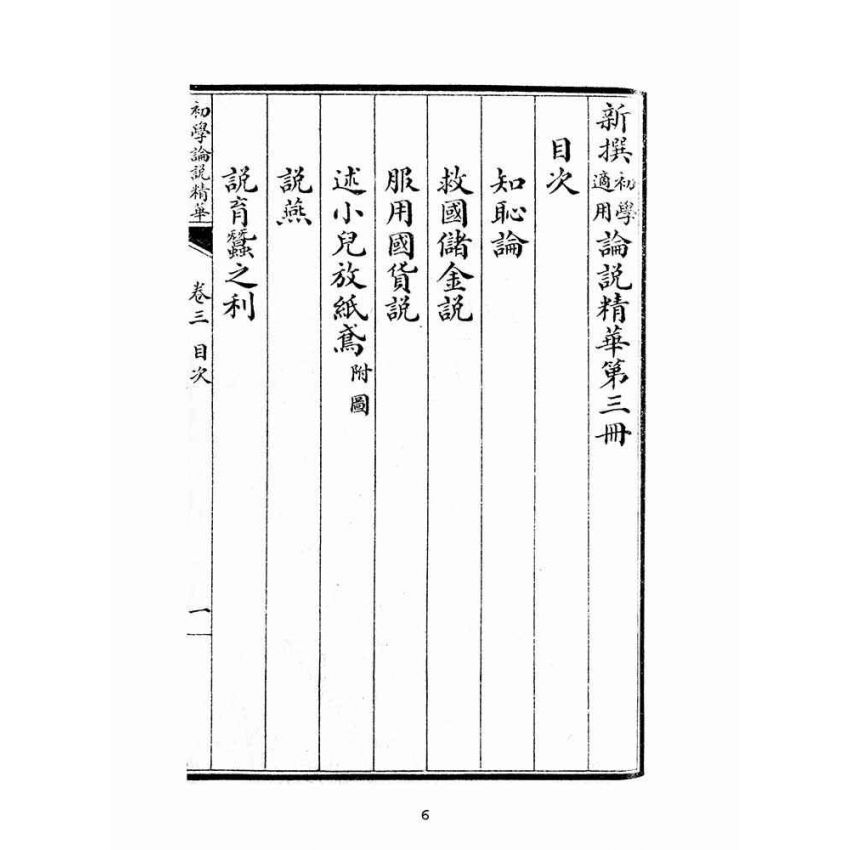 新撰初學適用論説精華第三冊
目次
知恥論
救國儲金説
服用國貨説
述小兒放紙鳶附圖
説燕
説育蠶之利
初學論説精華
卷三目次
一
6